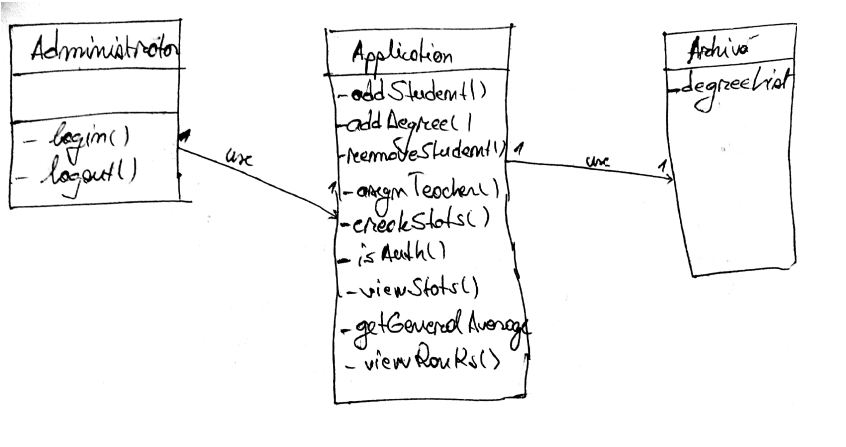 Administrator
- login()
- logout()
1
use
1
Application
- addStudent()
- addDegree()
- removeStudent()
- assignTeacher()
- createStats()
- isAuth()
- viewStats()
- getGeneralAverage
- viewRanks()
1
use
1
Archive
- degreeList